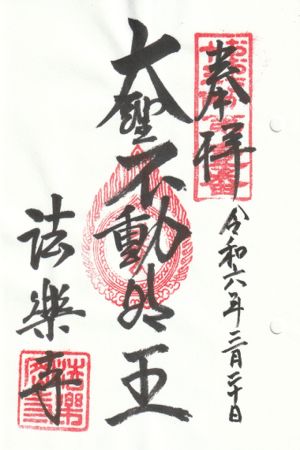 奉拝
令和六年三月二十日
大聖不動明王
法樂寺